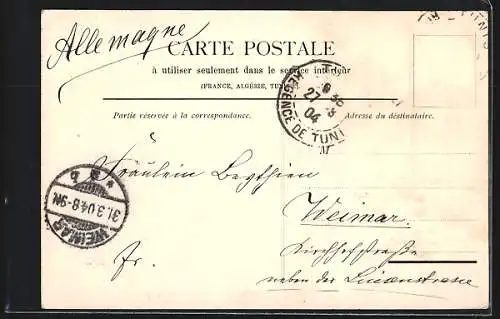 Allemagne
CARTE POSTALE
à utiliser seulement dans le service intérieur
(FRANCE, ALGÉRIE, TUN
Partie réservée à la correspondance.
Adresse du destinataire.
27
04
REGENCE DE TUNI
Fräulein Beythien
Weimar
Kirchhofstraße
neben der
Fr.
WEIMAR
31.3.04.8-9N.